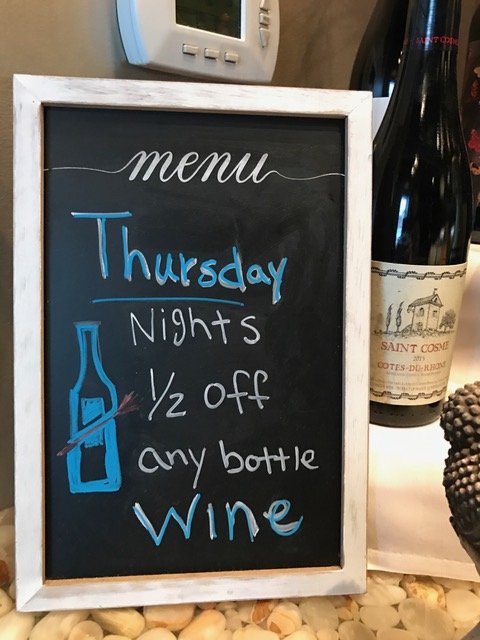 menu
Thursday
Nights
1/2 off
any bottle
Wine
SAINT COSME
SAINT COSME
2015
CÔTES-DU-RHÔNE